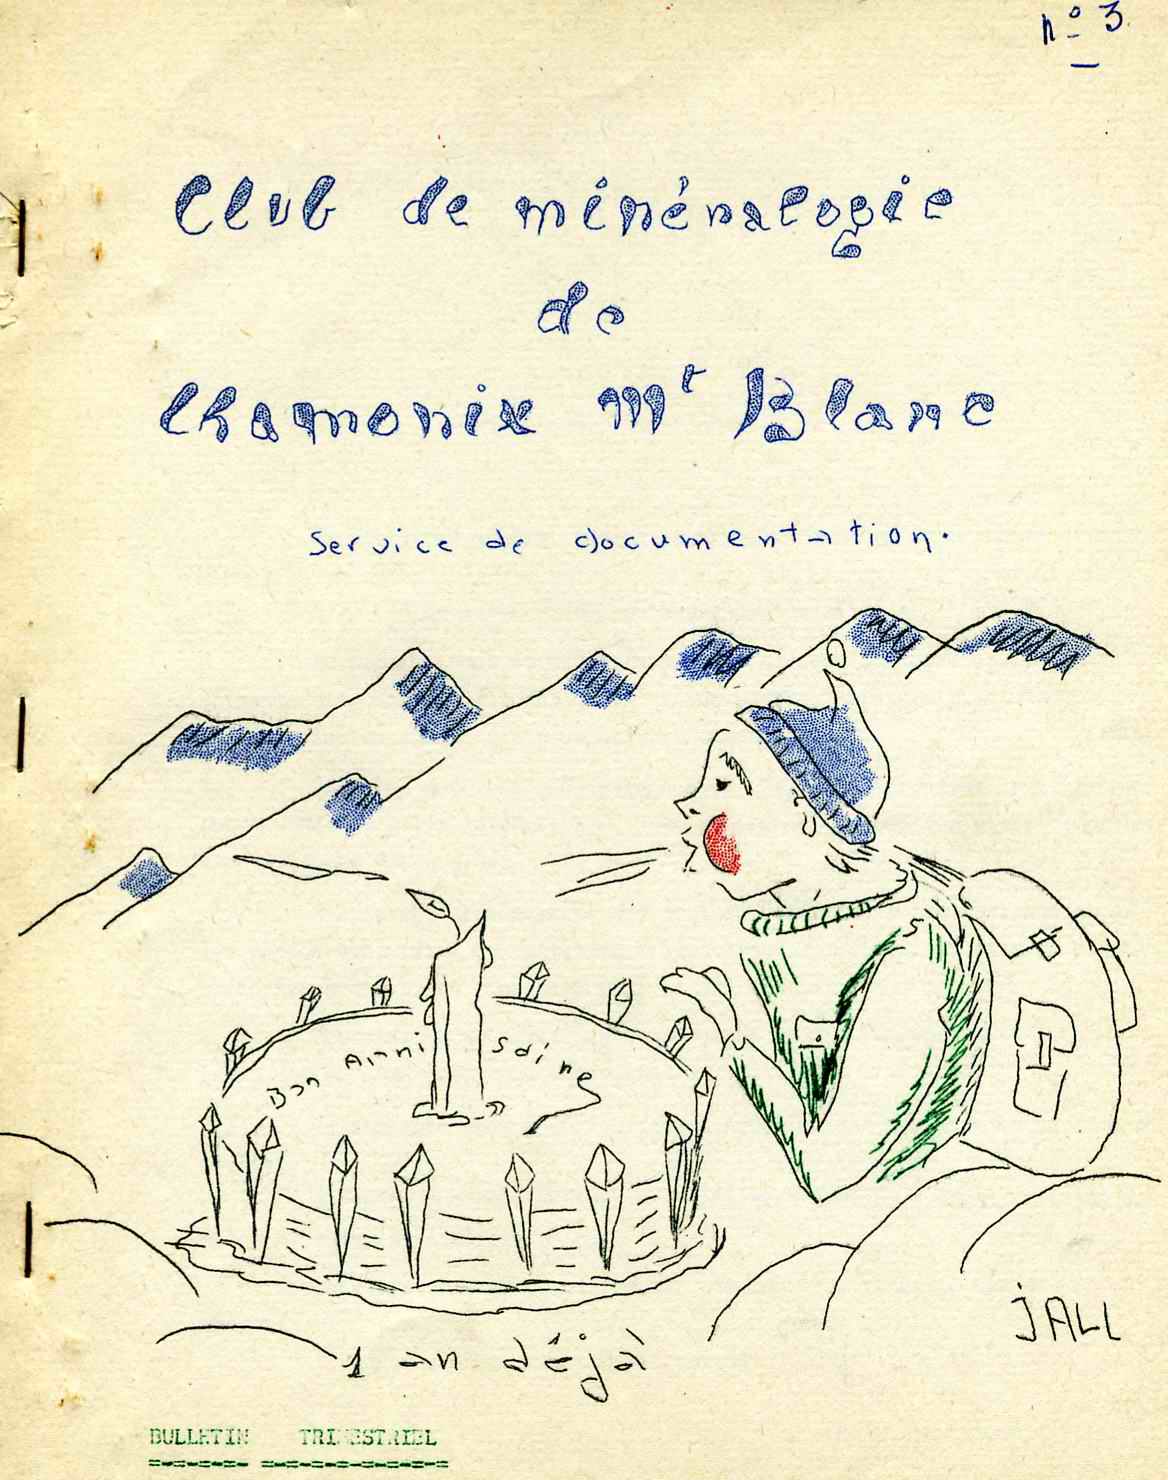 n° 3
Club de minéralogie
de
Chamonix Mt Blanc
Service de documentation.
Bon Anni saire
1 an déjà
jALL
BULLETIN TRIMESTRIEL